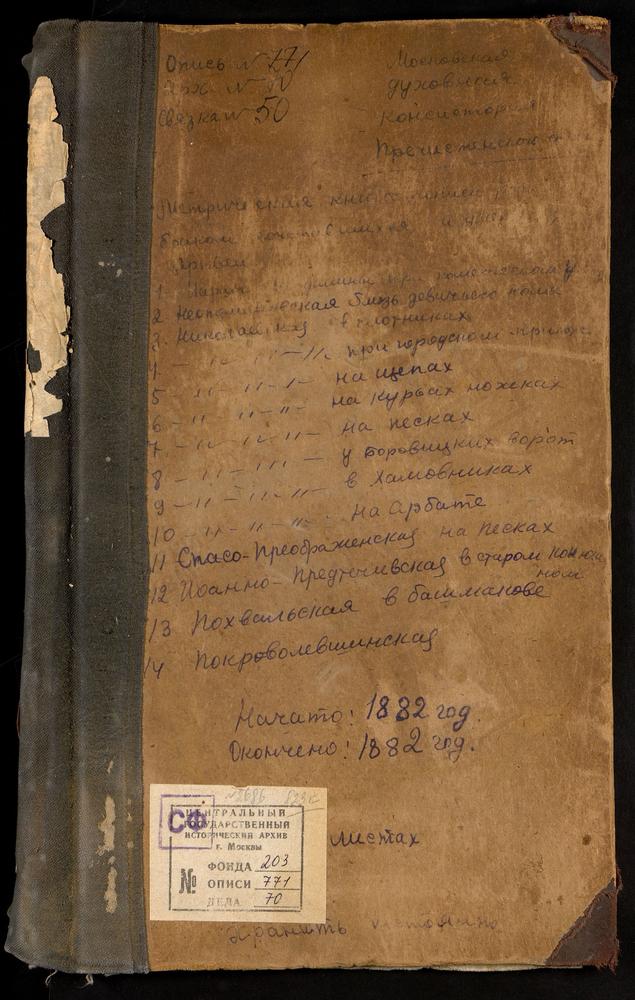 Опись № 771
Арх № 70
Связка № 50
Московская
духовная
консистория
Пречистенского
Метрическая книга записи
браком сочетавшихся и
2 Неопалимовская близь девичьего поля
3. Николаевская в плотниках
4. -"- -"- -"- при городском
5 -"- -"- -"- на щепах
6 -"- -"- -"- на курьах ножках
7 -"- -"- -"- на песках
8 -"- -"- -"- у Боровицких ворот
9 -"- -"- -"- в Хамовниках
10 -"- -"- -"- на Арбате
11 Спасо-Преображенская на песках
12 Иоанно-Предтечивская в старом Конюшен
ном
13 Похвальская в башмакове
14 Покроволевшинская
Начато: 1882 год.
Окончено: 1882 год.
листах
СФ
ЦЕНТРАЛЬНЫЙ
ГОСУДАРСТВЕННЫЙ
ИСТОРИЧЕСКИЙ АРХИВ
г. Москвы
ФОНДА 203
№ ОПИСИ 771
ДЕЛА 70
Хранить постоянно